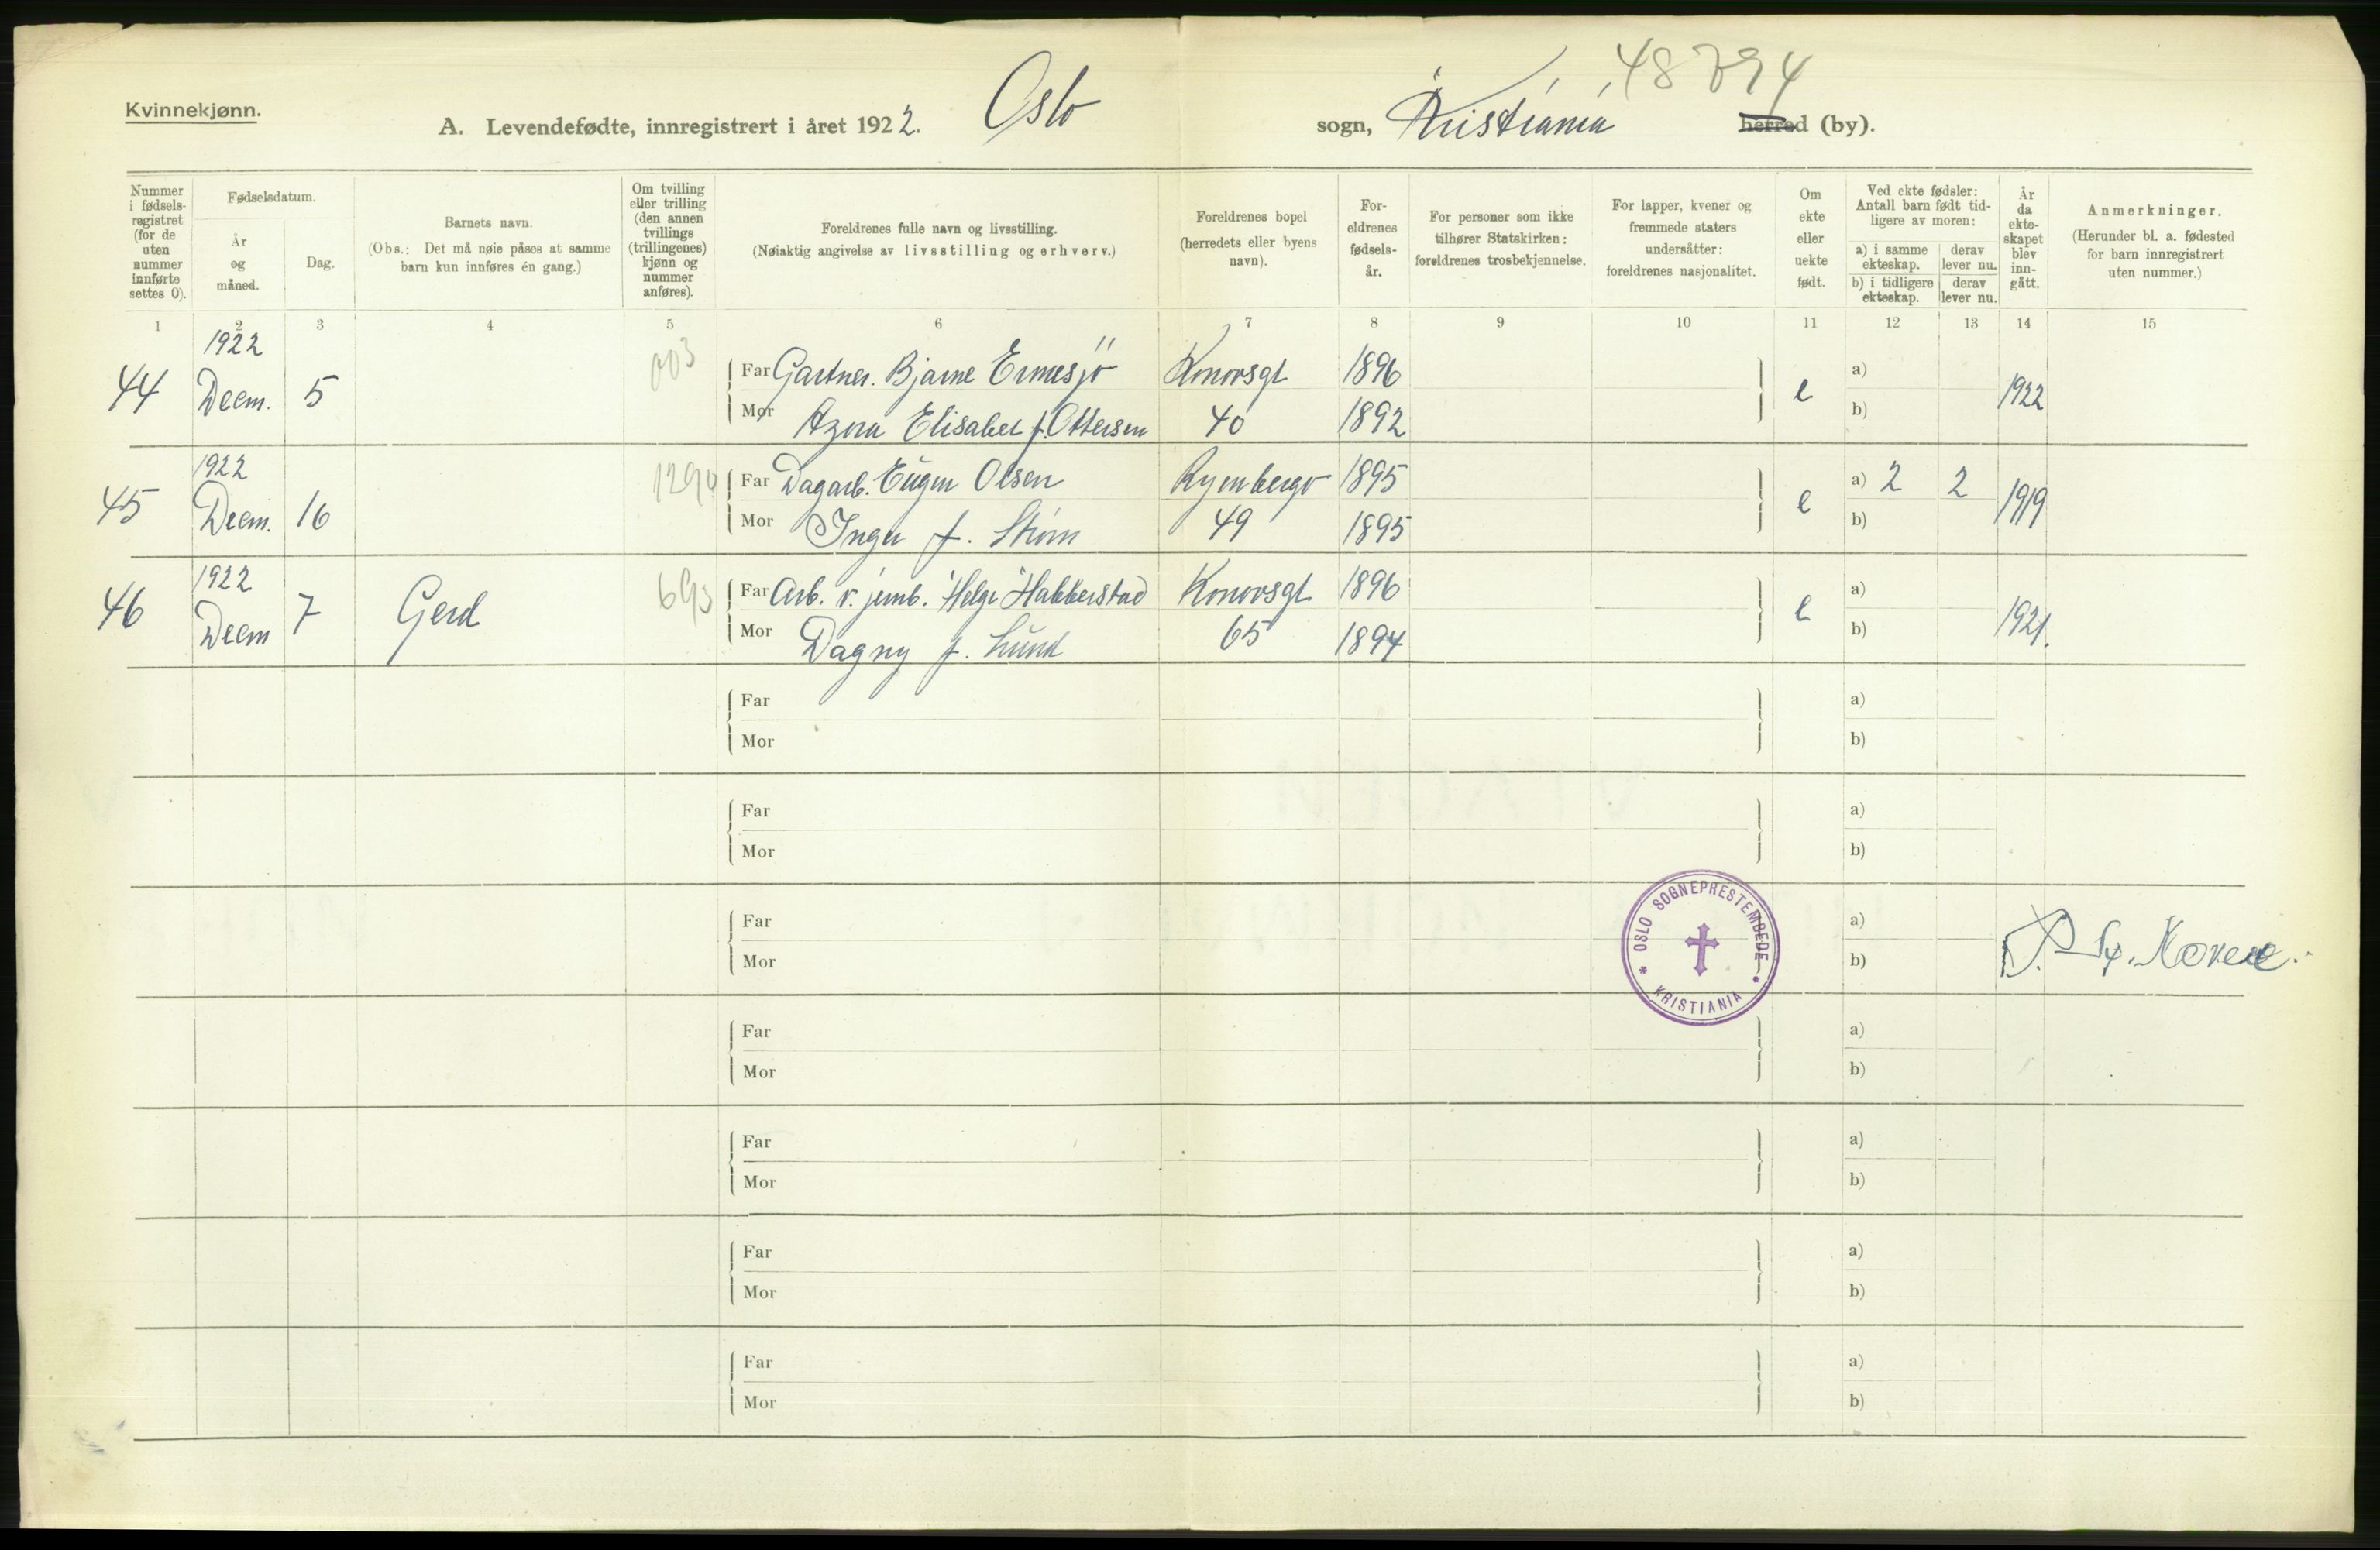 48794
Kvinnekjønn.
A. Levendefødte, innregistrert i året 1922. Oslo sogn, Kristiania herred (by).
Nummer i fødsels-registret (for de uten nummer innførte settes 0).
Fødselsdatum.
År og måned.
Dag.
Barnets navn.
(Obs.: Det må nøie påses at samme barn kun innføres én gang.)
Om tvilling eller trilling (den annen tvillings (trillingenes) kjønn og nummer anføres).
Foreldrenes fulle navn og livsstilling.
(Nøiaktig angivelse av livsstilling og erhverv.)
Foreldrenes bopel (herredets eller byens navn).
For-eldrenes fødsels-år.
For personer som ikke tilhører Statskirken: foreldrenes trosbekjennelse.
For lapper, kvener og fremmede staters undersåtter: foreldrenes nasjonalitet.
Om ekte eller uekte født.
Ved ekte fødsler: Antall barn født tid-ligere av moren:
a) i samme ekteskap. derav lever nu.
b) i tidligere ekteskap. derav lever nu.
År da ekte-skapet blev inn-gått.
Anmerkninger.
(Herunder bl. a. fødested for barn innregistrert uten nummer.)
1 2 3 4 5 6 7 8 9 10 11 12 13 14 15
1922 003
44 Decm. 5 Far Gartner. Bjarne Ermesjö Konowsgt 1896 e a) 1922
Mor Azora Elisabet f. Ottersen 40 1892 b)
1922 1290
45 Decm. 16 Far Dagarb. Eugen Olsen Ryenbergv 1895 e a) 2 2 1919
Mor Inger f. Strøm 49 1895 b)
1922 693
46 Decm 7 Gerd Far Arb. v. jernb. Helge Hakkerstad Konowsgt 1896 e a) 1921.
Mor Dagny f. Lund 65 1894 b)
Far a)
Mor b)
Far a)
Mor b)
Far a)
Mor b)
OSLO SOGNEPRESTEMBEDE
KRISTIANIA
Far a)
Mor b)
Far a)
Mor b)
Far a)
Mor b)
Far a)
Mor b)